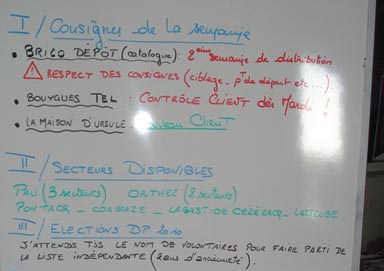 I / Consignes de la semaine
• BRICO DÉPÔT (catalogue): 2ème semaine de distribution
⚠ RESPECT DES CONSIGNES (ciblage - pT de départ etc...)
• BOUYGUES TEL : CONTRÔLE CLIENT dès Mardi !
• LA MAISON D'URSULE : Nouveau CLIENT
II / SECTEURS DISPONIBLES
PAU (3 secteurs) ORTHEZ (2 secteurs)
PONTACQ - COARAZE - LABASTIDE CEZERACQ - LASSEUBE
III / ELECTIONS DP 2010
J'ATTENDS TJS LE NOM DE VOLONTAIRES POUR FAIRE PARTI DE
LA LISTE INDÉPENDANTE (2 ans d'ancienneté).